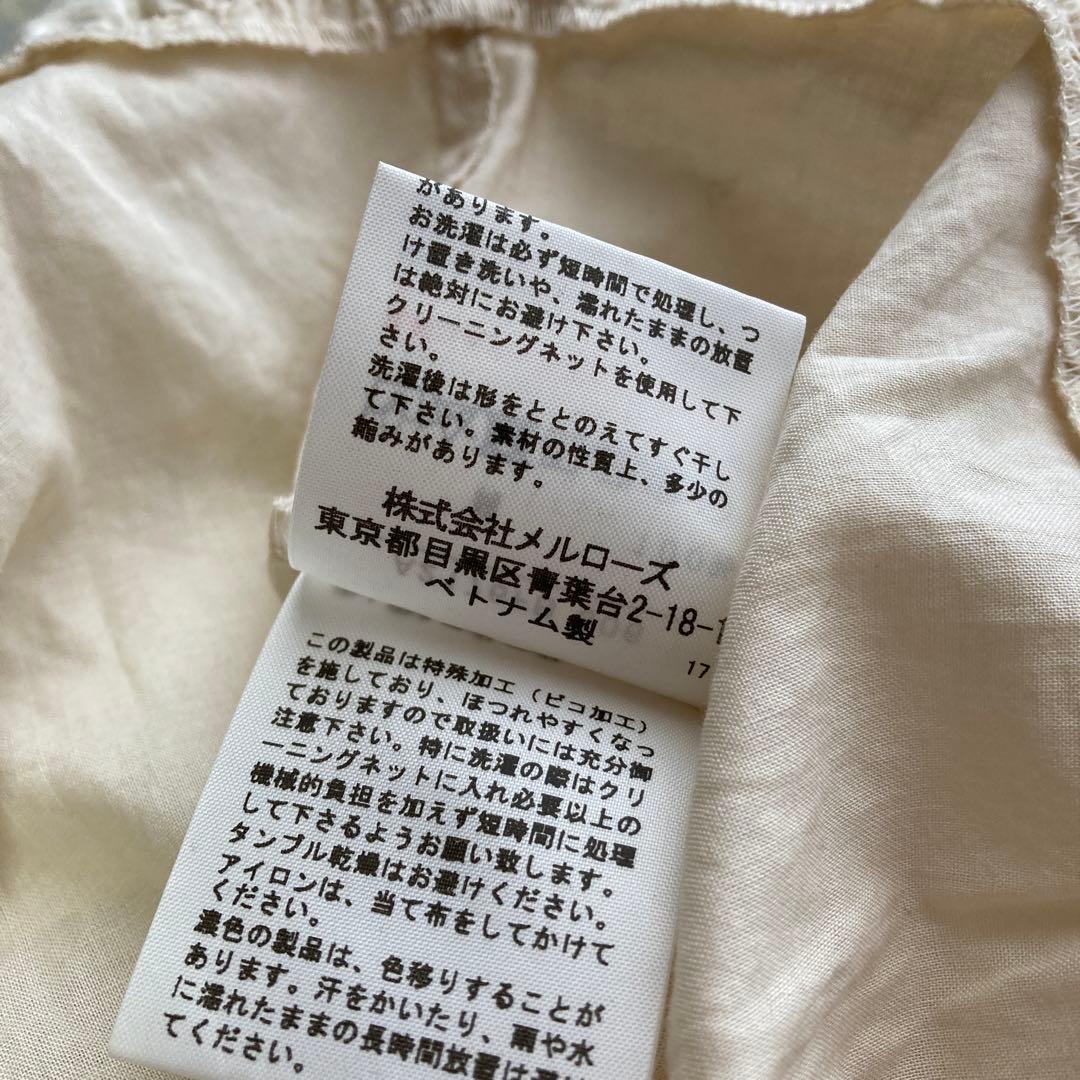 があります。
お洗濯は必ず短時間で処理し、つ
け置き洗いや、濡れたままの放置
は絶対にお避け下さい。
クリーニングネットを使用して下
さい。
洗濯後は形をととのえてすぐ干し
て下さい。素材の性質上、多少の
縮みがあります。
株式会社メルローズ
東京都目黒区青葉台2-18-
ベトナム製
17
この製品は特殊加工（ピコ加工）
を施しており、ほつれやすくなっ
ておりますので取扱いには充分御
注意下さい。特に洗濯の際はクリ
ーニングネットに入れ必要以上の
機械的負担を加えず短時間に処理
して下さるようお願い致します。
タンブル乾燥はお避けください。
アイロンは、当て布をしてかけて
ください。
濃色の製品は、色移りすることが
あります。汗をかいたり、雨や水
に濡れたままの長時間放置は
てください。